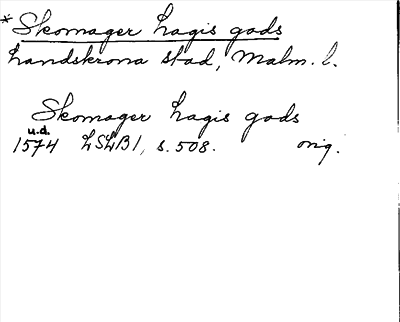 * Skomager Lagis gods
Landskrona stad, Malm. l.
Skomager Lagis gods
u.d.
1574 LSLB1, s. 508. orig.